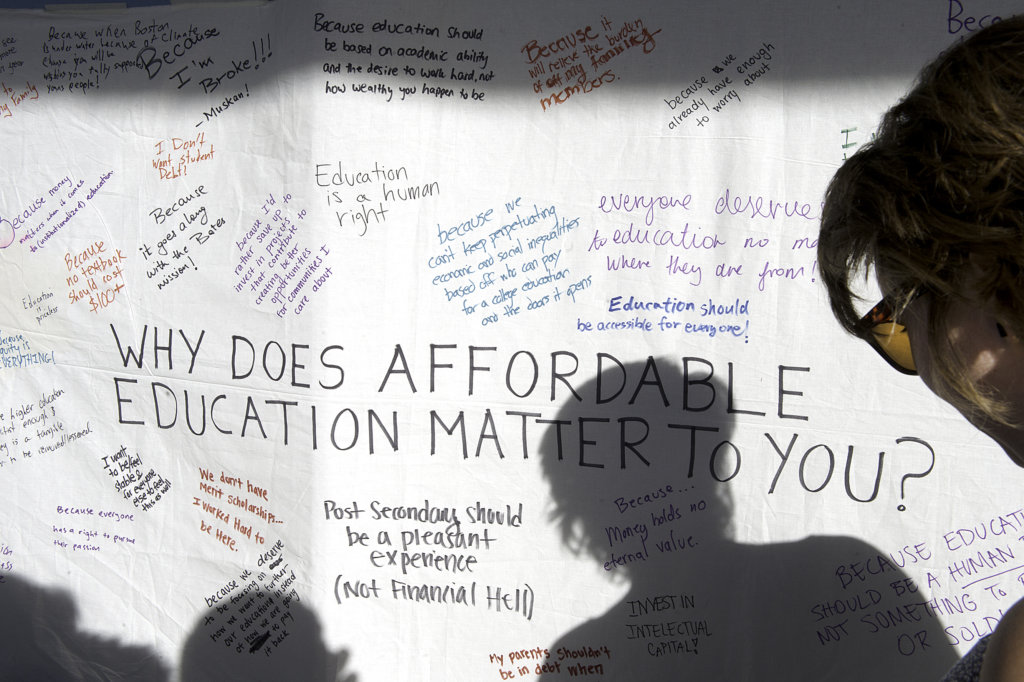 Because when Boston
is under water because of climate
change you will be
your people!
Because
I'm
Broke!!!
-Muskan!
Because education should
be based on academic ability
and the desire to work hard, not
how wealthy you happen to be
Because it
will relieve the burden
of my family
members.
because we
already have enough
to worry about
Bec
I Don't
want student
Debt!
Because money
matters when it comes
to (institutionalized) education.
Because
it goes along
with the Bates
mission!
because I'd
rather save up to
invest in projects
that contribute to
creating better
opportunities
for communities I
care about
Education
is a human
right
because we
can't keep perpetuating
economic and social inequalities
based off who can pay
for a college education
and the doors it opens
everyone deserve
to education no ma
where they are from!
Education should
be accessible for everyone!
Because
no textbook
should cost
$100+
Education
is
priceless
equity is
EVERYTHING!
WHY DOES AFFORDABLE
EDUCATION MATTER TO YOU?
higher education
I want
to be/feel
stable &
for everyone
else to feel
this as well
Because everyone
has a right to pursue
their passion
We don't have
Merit scholarships...
I worked Hard to
be Here.
because we deserve
to be focusing on
how we want to further
our education instead
of how we are going
to pay
it back
Post Secondary should
be a pleasant
experience
(Not Financial Hell)
Because...
Money holds no
eternal value.
INVEST IN
INTELECTUAL
CAPITAL!
My parents shouldn't
be in debt when
BECAUSE EDUCATI
SHOULD BE A HUMAN
NOT SOMETHING TO
OR SOLD